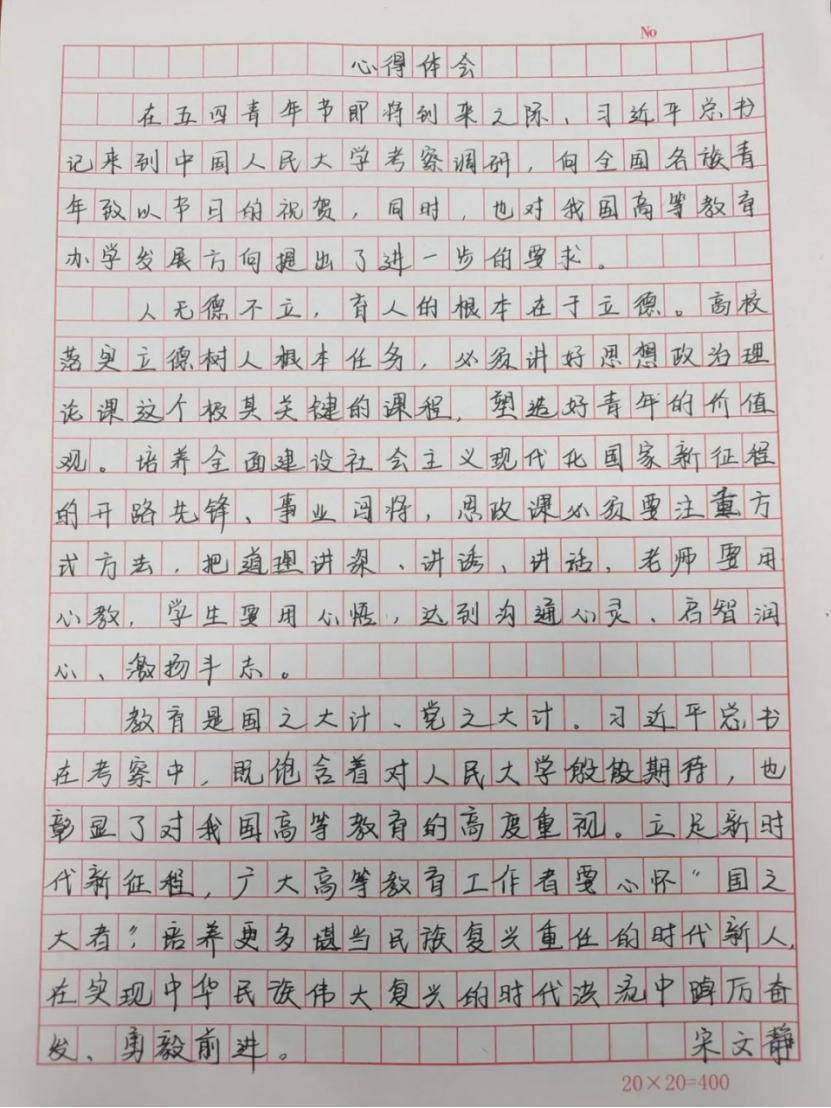 No
心得体会
在五四青年节即将到来之际、习近平总书
记来到中国人民大学考察调研，向全国各族青
年致以节日的祝贺，同时，也对我国高等教育
办学发展方向提出了进一步的要求。
人无德不立，育人的根本在于立德。高校
落实立德树人根本任务，必须讲好思想政治理
论课这个极其关键的课程，塑造好青年的价值
观。培养全面建设社会主义现代化国家新征程
的开路先锋、事业闯将，思政课必须要注重方
式方法，把道理讲深、讲透、讲活，老师要用
心教，学生要用心悟，达到沟通心灵、启智润
心、激扬斗志。
教育是国之大计、党之大计。习近平总书
在考察中，既饱含着对人民大学殷殷期待，也
彰显了对我国高等教育的高度重视。立足新时
代新征程，广大高等教育工作者要心怀“国之
大者”，培养更多堪当民族复兴重任的时代新人，
在实现中华民族伟大复兴的时代洪流中踔厉奋
发、勇毅前进。 宋文静
20×20=400